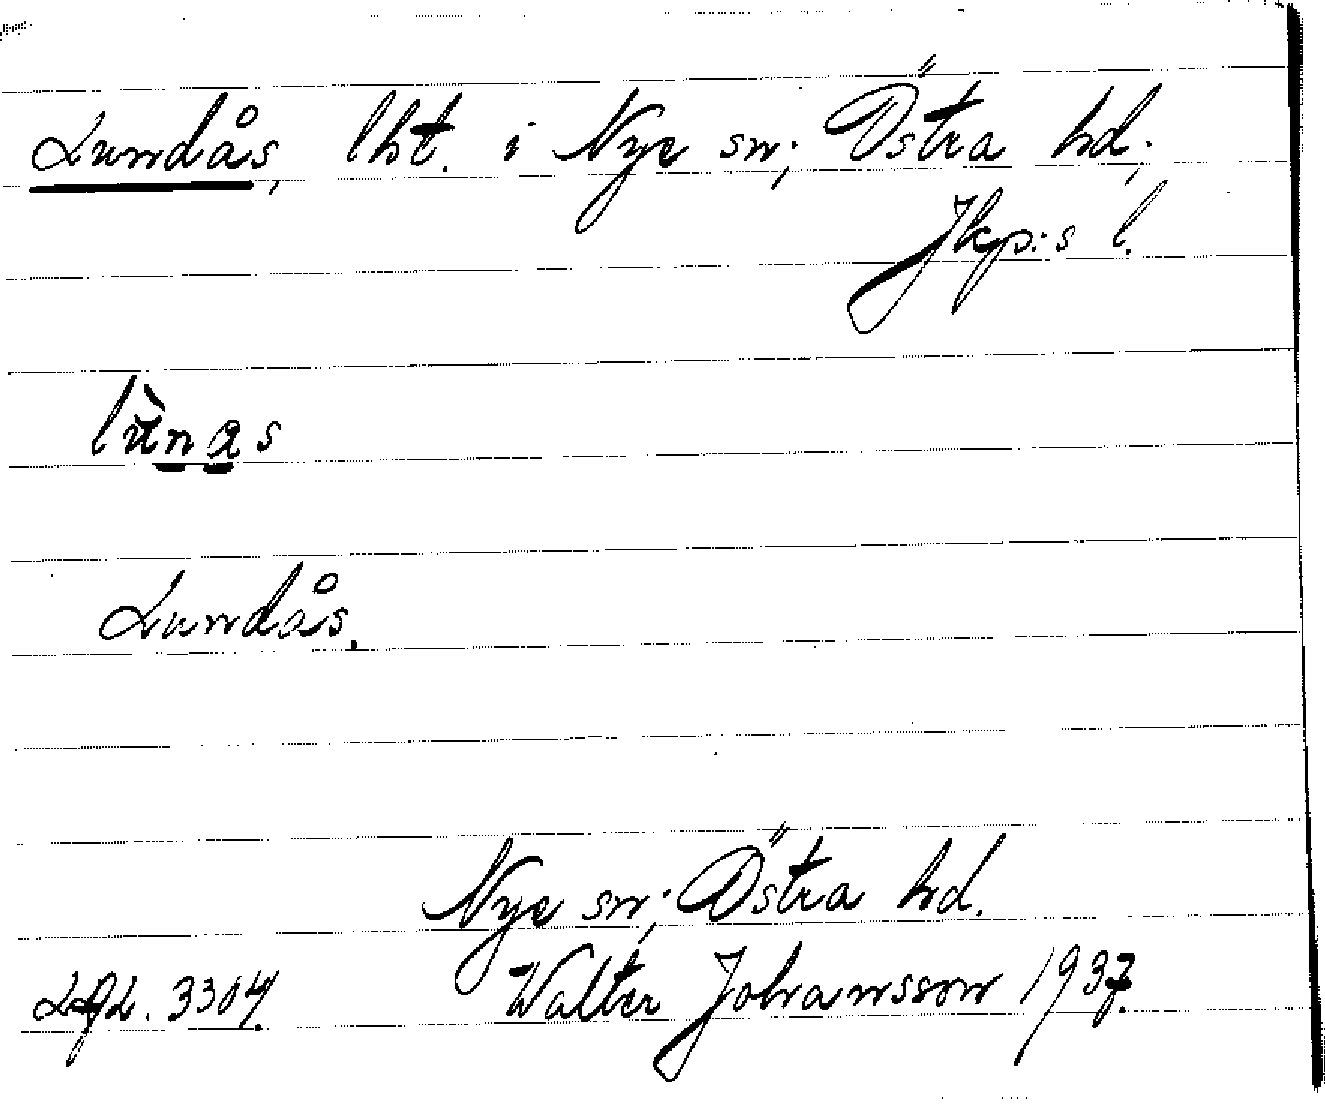 Lundås, lht. i Nye sn; Östra hd;
Jkp:s l.
lùnas
Lundås.
Nye sn; Östra hd.
3304. Walter Johansson 1937.